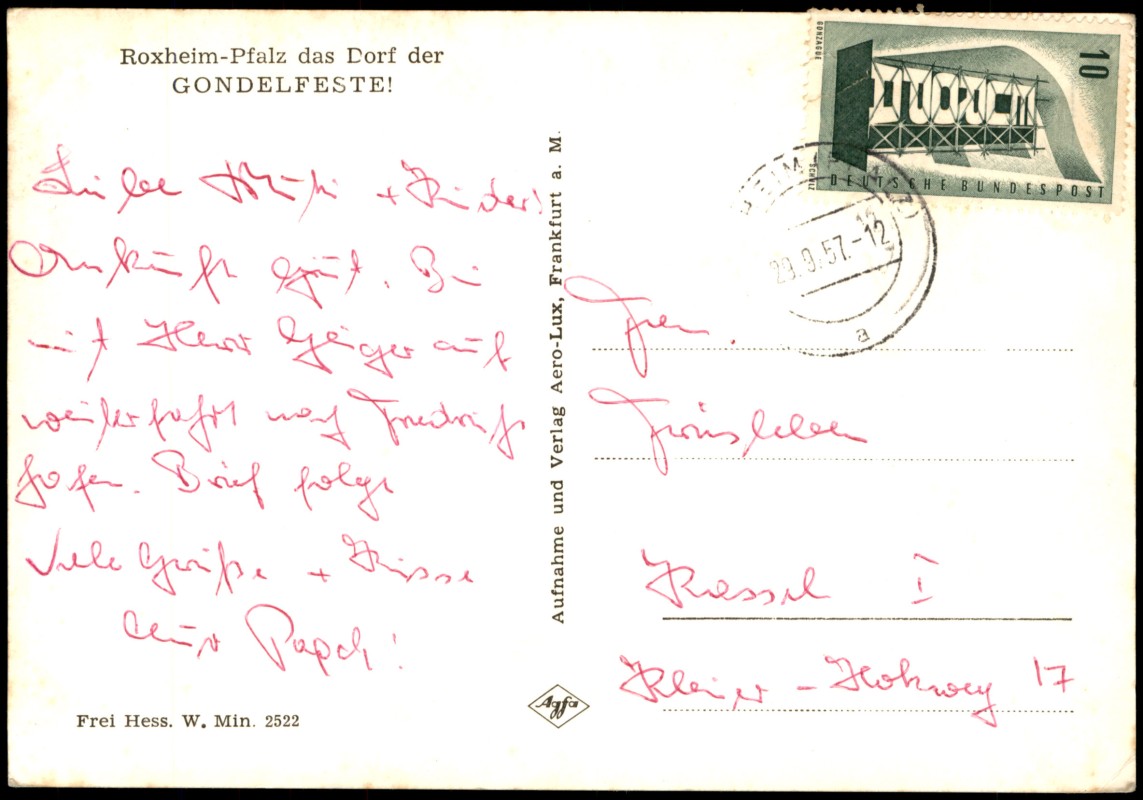 Roxheim-Pfalz das Dorf der
GONDELFESTE!
Kinder!
Ankunft gut. Bin
mit Herr Geiger auf
weiterfahrt nach Friedrichs
hafen. Brief folgt
Viele Grüße + Küsse
Euer Papch!
Frei Hess. W. Min. 2522
Aufnahme und Verlag Aero-Lux, Frankfurt a. M.
Agfa
GONZAGUE
SCHULZ
10
EUROPA
DEUTSCHE BUNDESPOST
HEIM
29.9.57.-12
a
Kassel I
17